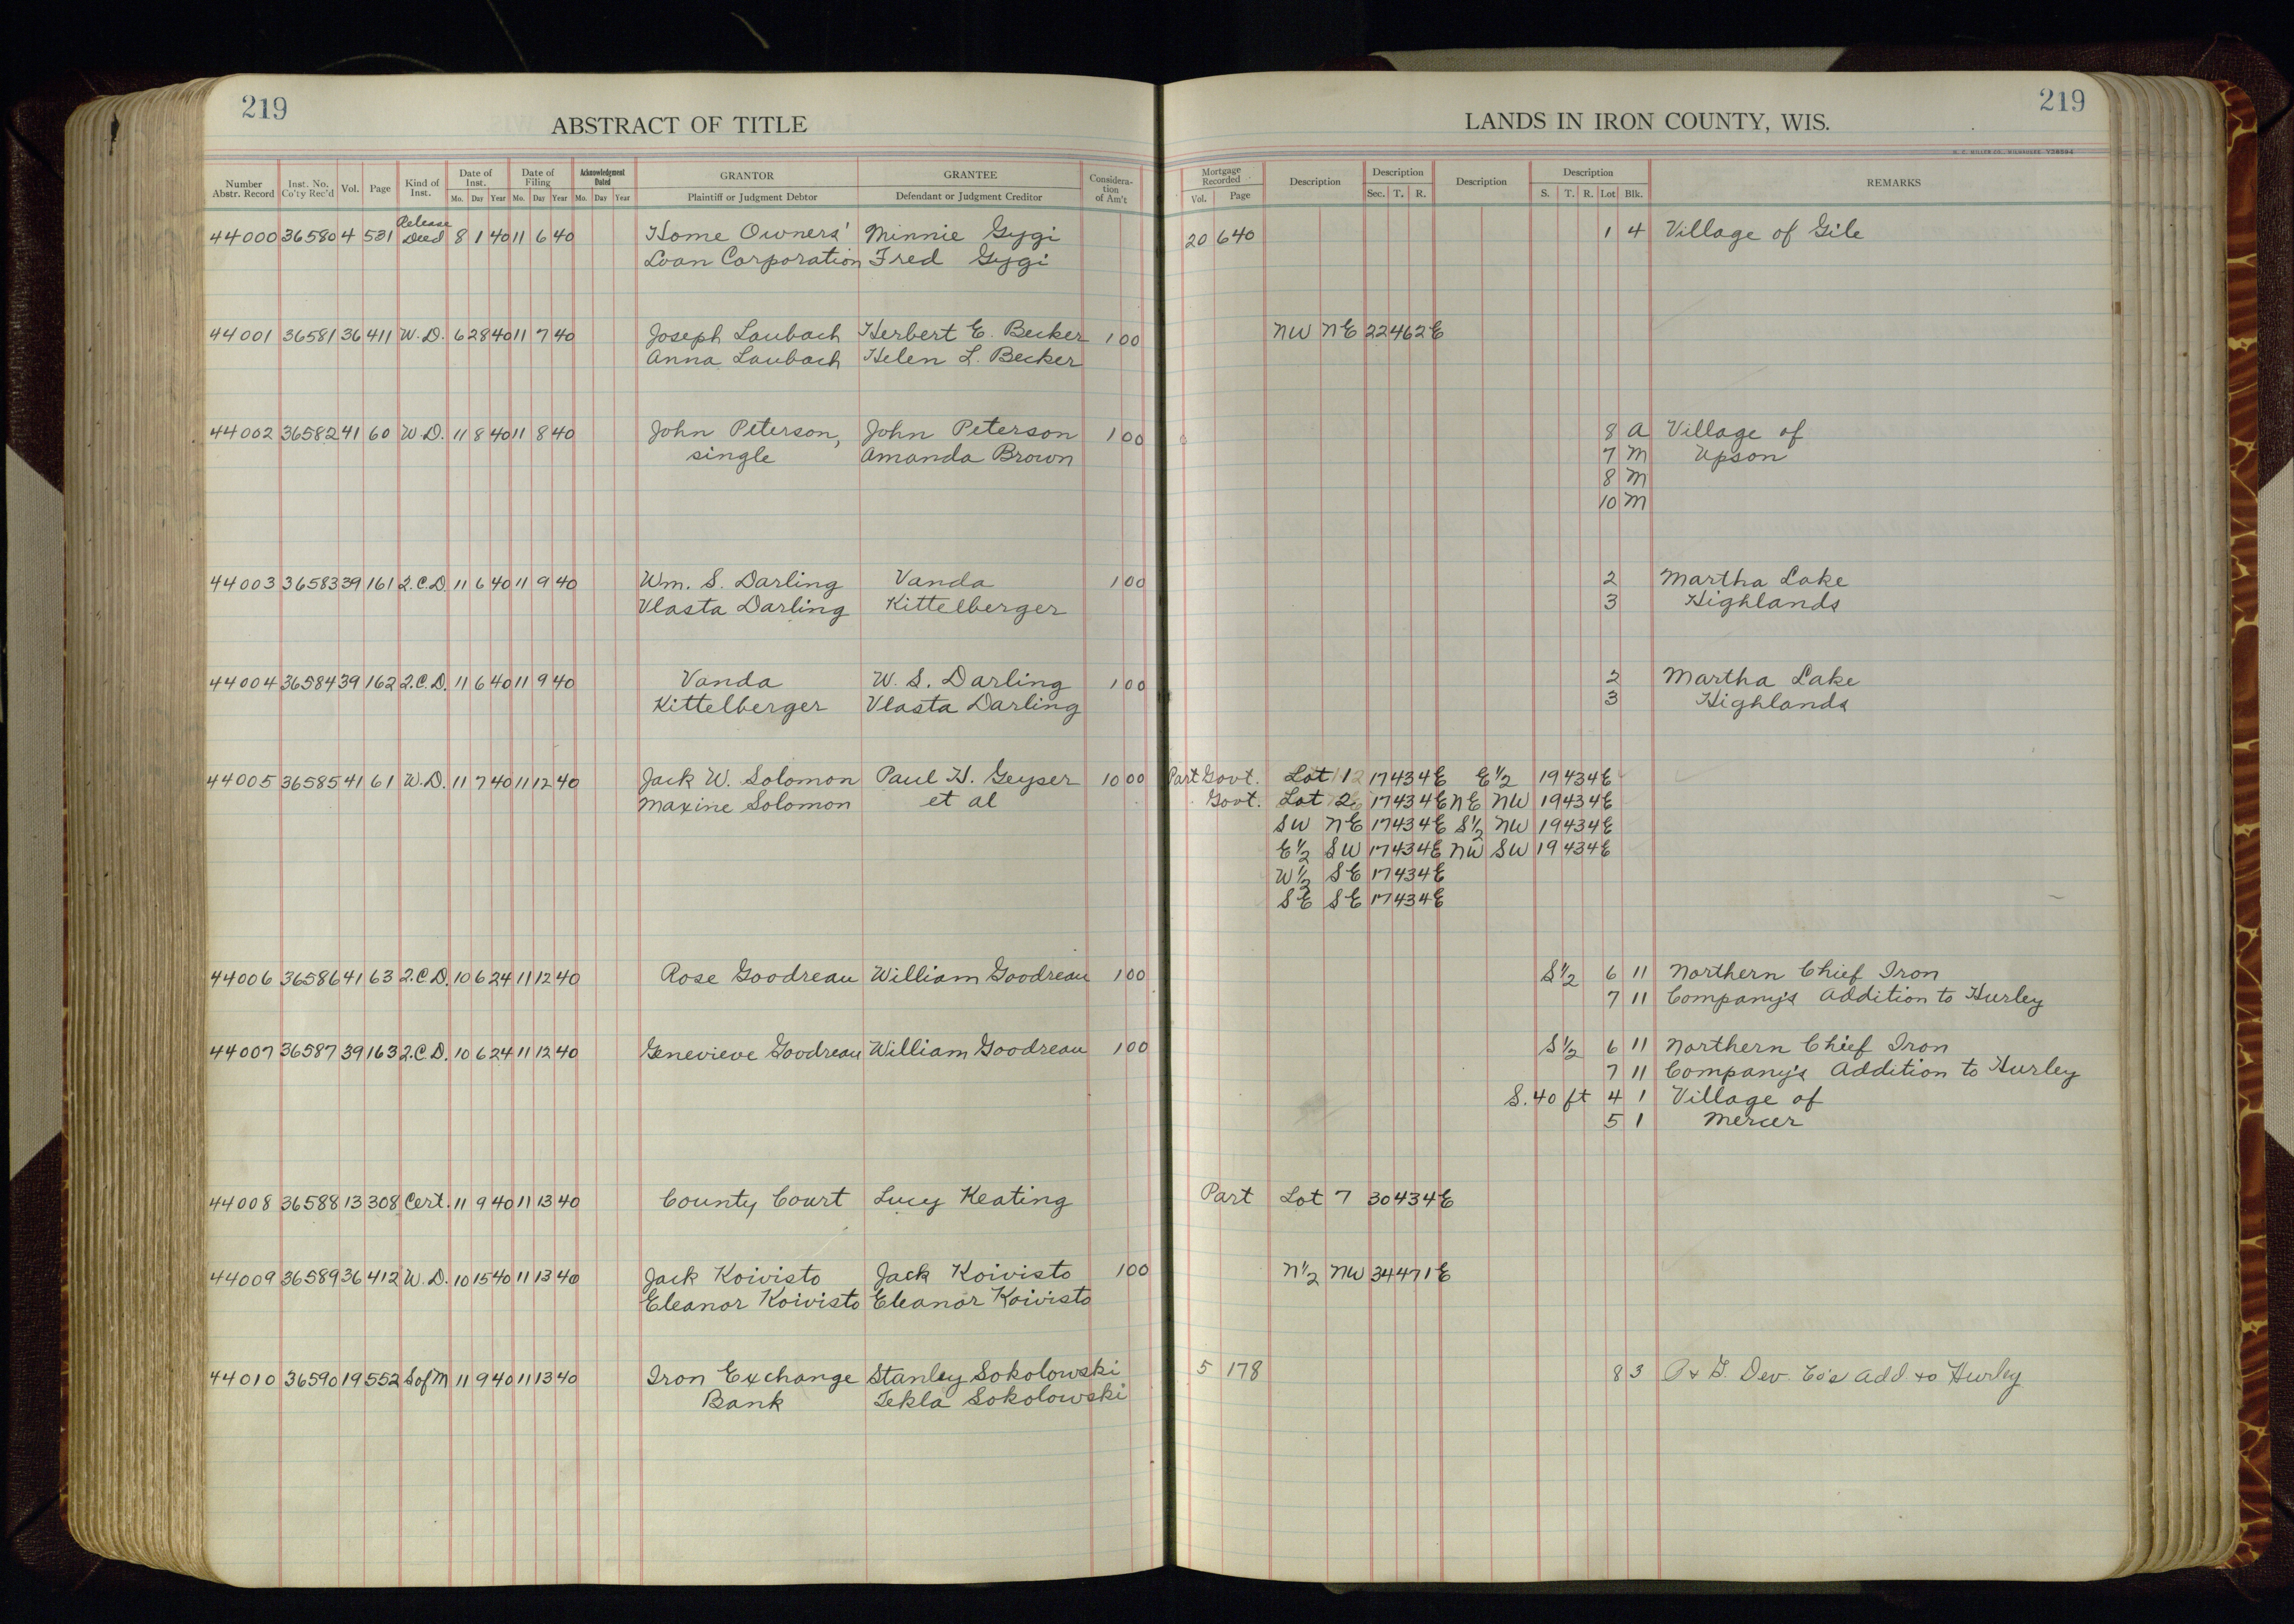 219
ABSTRACT OF TITLE
Number Abstr. Record Inst. No. Co'ty Rec'd Vol. Page Kind of Inst. Date of Inst. Mo. Day Year Date of Filing Mo. Day Year Acknowledgment Dated Mo. Day Year GRANTOR Plaintiff or Judgment Debtor GRANTEE Defendant or Judgment Creditor Considera-tion of Am't
44000 36580 4 531 Release Deed 8 1 40 11 6 40 Home Owners' Minnie Gygi
Loan Corporation Fred Gygi
44001 36581 36 411 W.D. 6 28 40 11 7 40 Joseph Laubach Herbert E. Becker 1 00
Anna Laubach Helen L. Becker
44002 36582 41 60 W.D. 11 8 40 11 8 40 John Peterson, John Peterson 1 00
single Amanda Brown
44003 36583 39 161 Q.C.D. 11 6 40 11 9 40 Wm. S. Darling Vanda 1 00
Vlasta Darling Kittelberger
44004 36584 39 162 Q.C.D. 11 6 40 11 9 40 Vanda W. S. Darling 1 00
Kittelberger Vlasta Darling
44005 36585 41 61 W.D. 11 7 40 11 12 40 Jack W. Solomon Paul H. Geyser 10 00
Maxine Solomon et al
44006 36586 41 63 Q.C.D. 10 6 24 11 12 40 Rose Goodreau William Goodreau 1 00
44007 36587 39 163 Q.C.D. 10 6 24 11 12 40 Genevieve Goodreau William Goodreau 1 00
44008 36588 13 308 Cert. 11 9 40 11 13 40 County Court Lucy Keating
44009 36589 36 412 W.D. 10 15 40 11 13 40 Jack Koivisto Jack Koivisto 1 00
Eleanor Koivisto Eleanor Koivisto
44010 36590 19 552 S of M 11 9 40 11 13 40 Iron Exchange Stanley Sokolowski
Bank Tekla Sokolowski
219
LANDS IN IRON COUNTY, WIS.
H. C. MILLER CO., MILWAUKEE
Mortgage Recorded Vol. Page Description Description Sec. T. R. Description Description S. T. R. Lot Blk. REMARKS
20 640 1 4 Village of Gile
NW NE 22 46 2E
8 A Village of
7 M Upson
8 M
10 M
2 Martha Lake
3 Highlands
2 Martha Lake
3 Highlands
Part Govt. Lot 1 17 43 4E E½ 19 43 4E
Govt. Lot 2 17 43 4E NE NW 19 43 4E
SW NE 17 43 4E S½ NW 19 43 4E
E½ SW 17 43 4E NW SW 19 43 4E
W½ SE 17 43 4E
SE SE 17 43 4E
S½ 6 11 Northern Chief Iron
7 11 Company's Addition to Hurley
S½ 6 11 Northern Chief Iron
7 11 Company's Addition to Hurley
S. 40 ft 4 1 Village of
5 1 Mercer
Part Lot 7 30 43 4E
N½ NW 34 47 1E
5 178 8 3 P & G. Dev. Co's Add. to Hurley